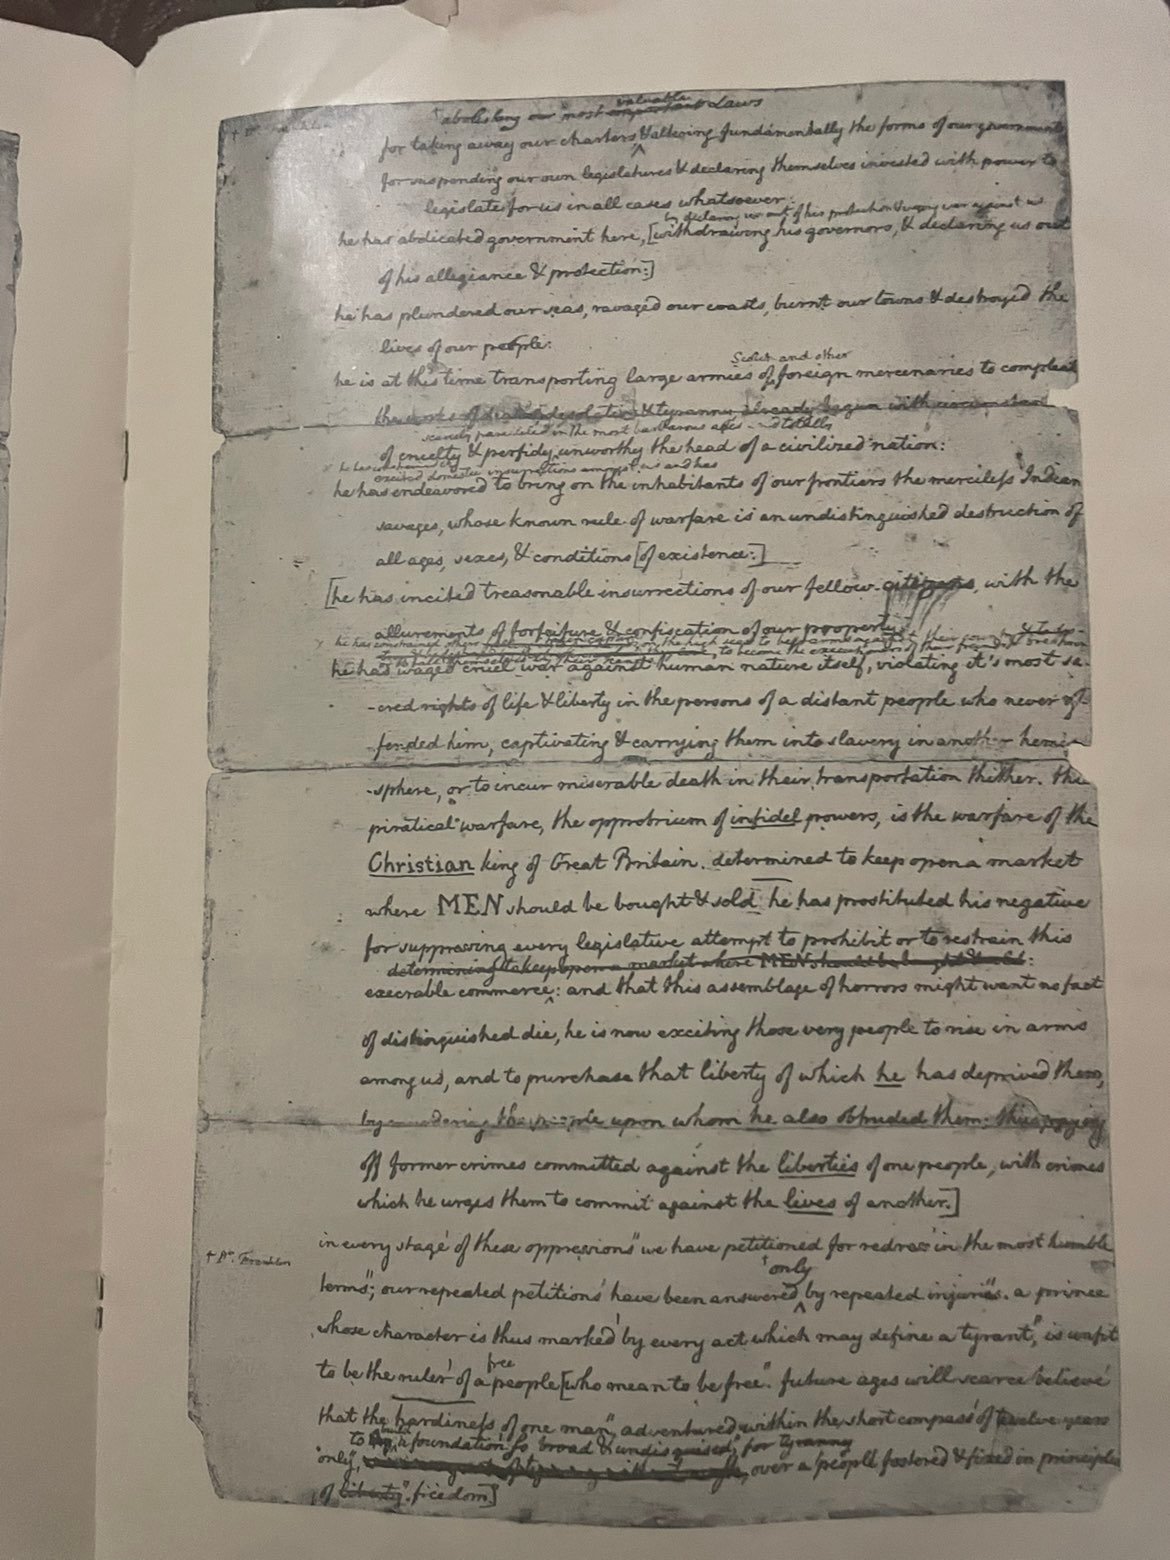 † Dr. Franklin
† abolishing our most important valuable Laws
for taking away our charters & altering fundamentally the forms of our governments
for suspending our own legislatures & declaring themselves invested with power to
legislate for us in all cases whatsoever:
by declaring us out of his protection & waging war against us
he has abdicated government here, [withdrawing his governors, & declaring us out
of his allegiance & protection:]
he has plundered our seas, ravaged our coasts, burnt our towns & destroyed the
lives of our people:
Scotch and other
he is at this time transporting large armies of foreign mercenaries to compleat
the works of death desolation & tyranny already begun with circumstances
scarcely paralleled in the most barbarous ages and totally
of cruelty & perfidy unworthy the head of a civilized nation:
excited domestic insurrections amongst us and has
he has endeavored to bring on the inhabitants of our frontiers the merciless Indian
savages, whose known rule of warfare is an undistinguished destruction of
all ages, sexes, & conditions [of existence:]
[he has incited treasonable insurrections of our fellow-citizens, with the
allurements of forfeiture & confiscation of our property
he has constrained others
he has waged cruel war against human nature itself, violating it's most sa-
-cred rights of life & liberty in the persons of a distant people who never of-
fended him, captivating & carrying them into slavery in another hemi-
-sphere, or to incur miserable death in their transportation thither. this
piratical warfare, the opprobrium of infidel powers, is the warfare of the
Christian king of Great Britain. determined to keep open a market
where MEN should be bought & sold he has prostituted his negative
for suppressing every legislative attempt to prohibit or to restrain this
determining to keep open a market where MEN should be bought & sold:
execrable commerce: and that this assemblage of horrors might want no fact
of distinguished die, he is now exciting those very people to rise in arms
among us, and to purchase that liberty of which he has deprived them,
by murdering the people upon whom he also obtruded them: thus paying
off former crimes committed against the liberties of one people, with crimes
which he urges them to commit against the lives of another.]
in every stage of these oppressions we have petitioned for redress in the most humble
† Dr. Franklin
† only
terms; our repeated petitions have been answered by repeated injuries. a prince
whose character is thus marked by every act which may define a tyrant, is unfit
free
to be the ruler of a people [who mean to be free. future ages will scarce believe
that the hardiness of one man, adventured within the short compass of twelve years
to build a foundation so broad & undisguised, for tyranny
only, over a people fostered & fixed in principles
of liberty freedom]